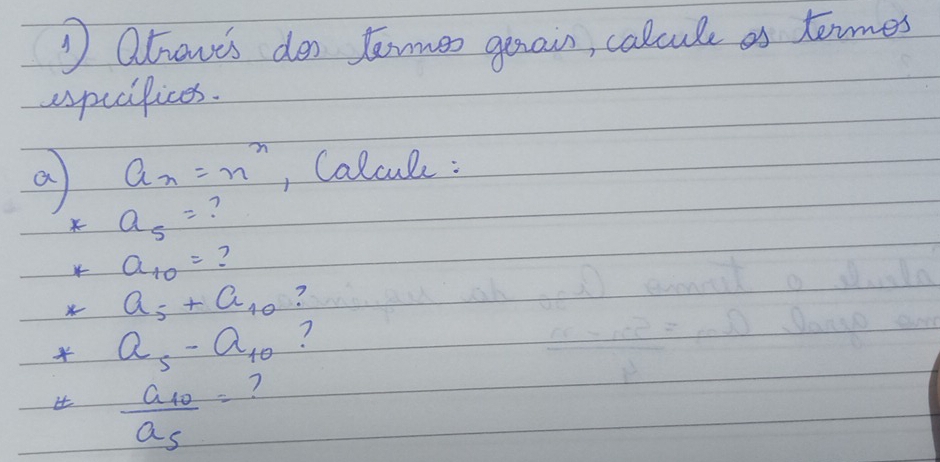 1) Através dos termos gerais, calcule os termos
específicos.
a) aₙ = nⁿ, Calcule:
* a₅ = ?
* a₁₀ = ?
* a₅ + a₁₀ ?
* a₅ - a₁₀ ?
* a₁₀/a₅ = ?